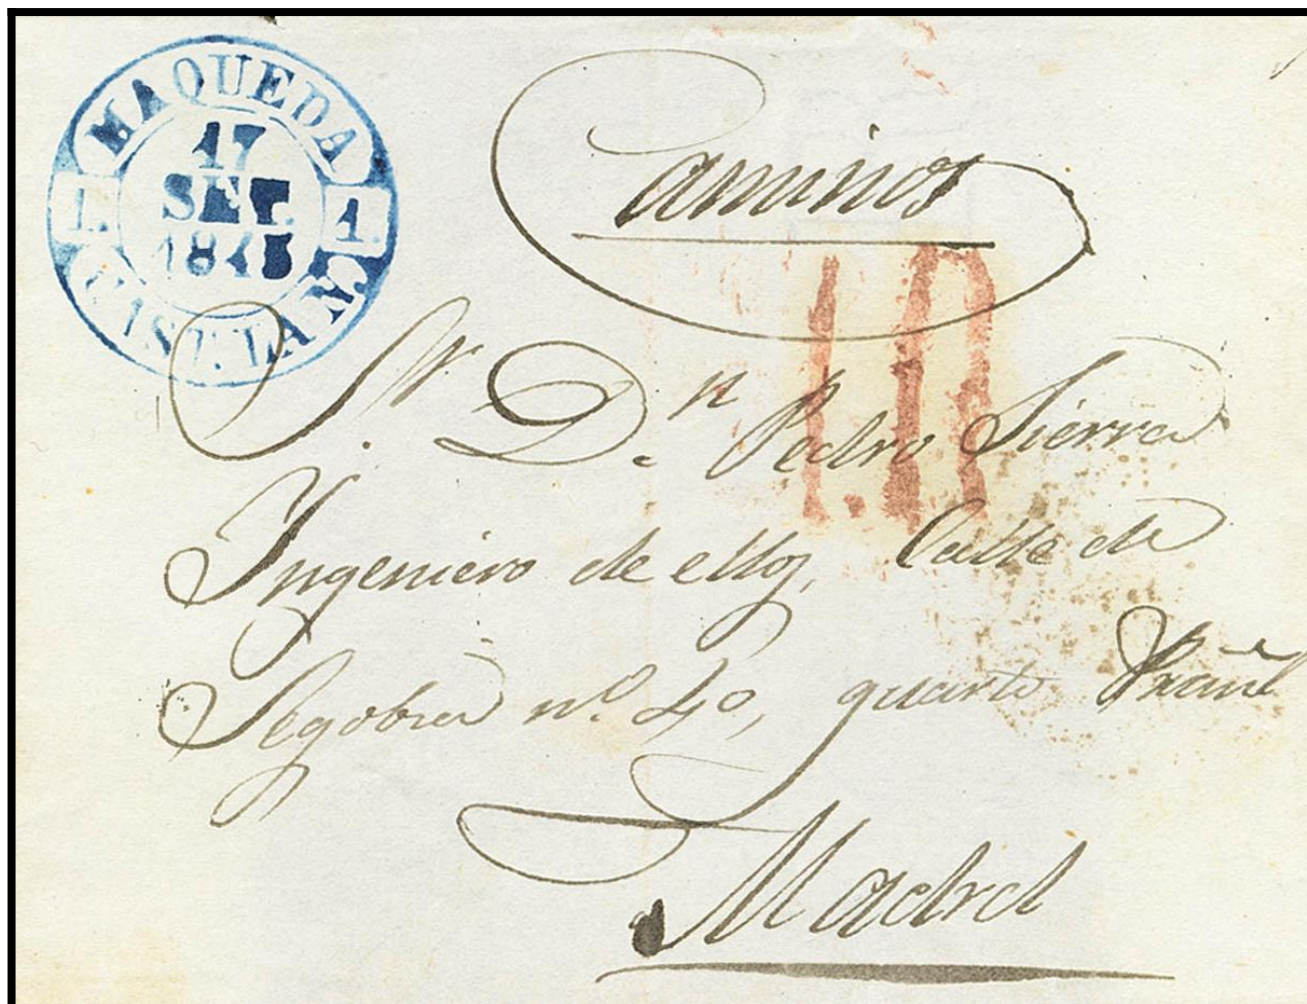 MAQUEDA
1. 17 1.
SET.
1845
CAST. LA N.
Caminos
10
Sr. Dn. Pedro Sierra
Ingeniero de ellos, Calle de
Segobia nº. 40, quarto
Madrid